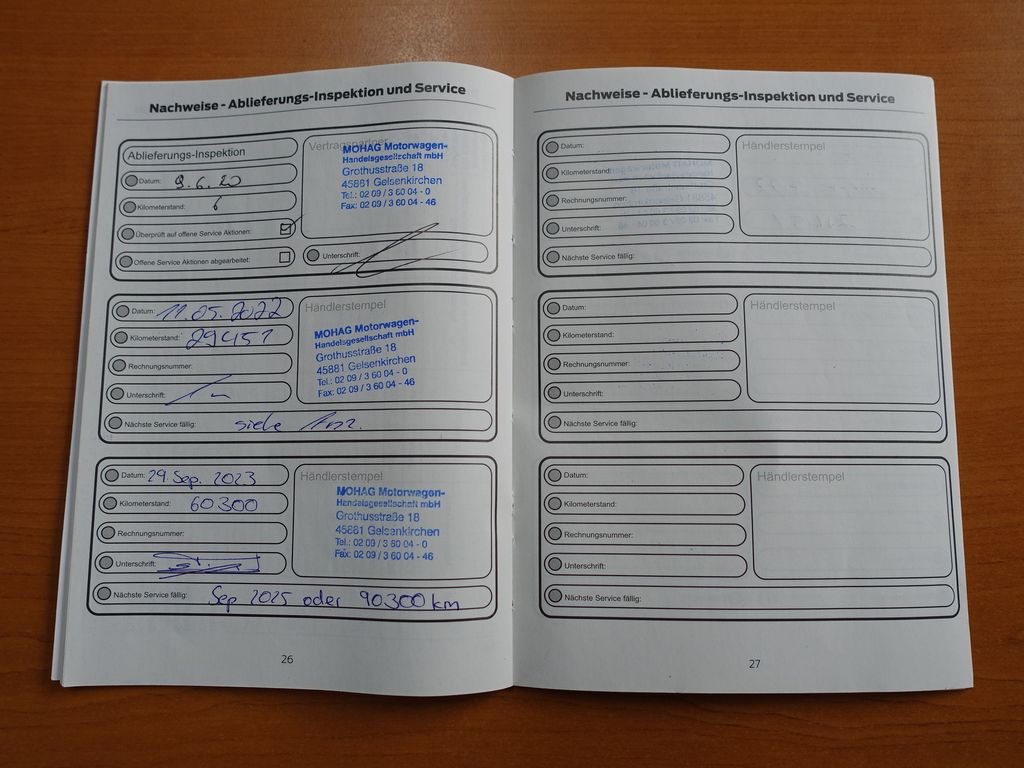 Nachweise - Ablieferungs-Inspektion und Service
Ablieferungs-Inspektion
Datum: 9.6.20
Kilometerstand: 6
Überprüft auf offene Service Aktionen:
Offene Service Aktionen abgearbeitet:
Vertragspartner
MOHAG Motorwagen-
Handelsgesellschaft mbH
Grothusstraße 18
45881 Gelsenkirchen
Tel.: 02 09 / 3 60 04 - 0
Fax: 02 09 / 3 60 04 - 46
Unterschrift:
Datum: 11.05.2022
Kilometerstand: 29451
Rechnungsnummer:
Unterschrift:
Händlerstempel
MOHAG Motorwagen-
Handelsgesellschaft mbH
Grothusstraße 18
45881 Gelsenkirchen
Tel.: 02 09 / 3 60 04 - 0
Fax: 02 09 / 3 60 04 - 46
Nächste Service fällig: siehe Anz.
Datum: 29 Sep. 2023
Kilometerstand: 60300
Rechnungsnummer:
Unterschrift:
Händlerstempel
MOHAG Motorwagen-
Handelsgesellschaft mbH
Grothusstraße 18
45881 Gelsenkirchen
Tel.: 02 09 / 3 60 04 - 0
Fax: 02 09 / 3 60 04 - 46
Nächste Service fällig: Sep 2025 oder 90300 km
26
Nachweise - Ablieferungs-Inspektion und Service
Datum:
Kilometerstand:
Rechnungsnummer:
Unterschrift:
Händlerstempel
Nächste Service fällig:
Datum:
Kilometerstand:
Rechnungsnummer:
Unterschrift:
Händlerstempel
Nächste Service fällig:
Datum:
Kilometerstand:
Rechnungsnummer:
Unterschrift:
Händlerstempel
Nächste Service fällig:
27